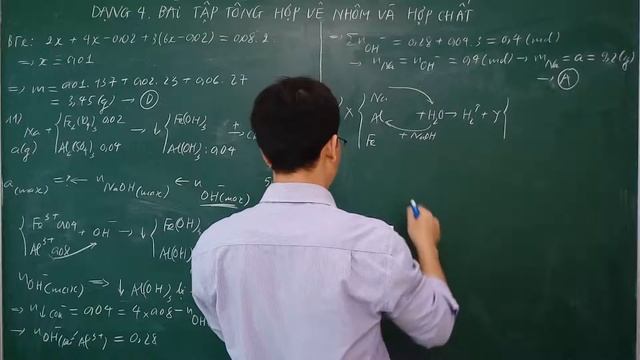 DẠNG 4. BÀI TẬP TỔNG HỢP VỀ NHÔM VÀ HỢP CHẤT
BTe: 2x + 4x - 0,02 + 3(6x - 0,02) = 0,08.2
→ x = 0,01
→ m = 0,01.137 + 0,02.23 + 0,06.27
= 3,45(g) → D
11) Na + { Fe₂(SO₄)₃ 0,02
a(g) Al₂(SO₄)₃ 0,04
→ ↓ { Fe(OH)₃
Al(OH)₃: 0,04
a(max) = ? ← nNaOH(max) ← nOH⁻(max)
{ Fe³⁺ 0,04
Al³⁺ 0,08
+ OH⁻ → ↓ { Fe(OH)
Al(OH)
nOH⁻(max) ⇒ ↓ Al(OH)₃ bị
→ n↓ = 0,04 = 4×0,08 - nOH
→ nOH⁻ (Al³⁺) = 0,28
→ ΣnOH⁻ = 0,28 + 0,04.3 = 0,4 (mol)
→ nNa = nOH⁻ = 0,4 (mol) → mNa = a = 9,2(g)
→ A
X { Na
Al + H₂O → H₂↑ + Y {
Fe + NaOH